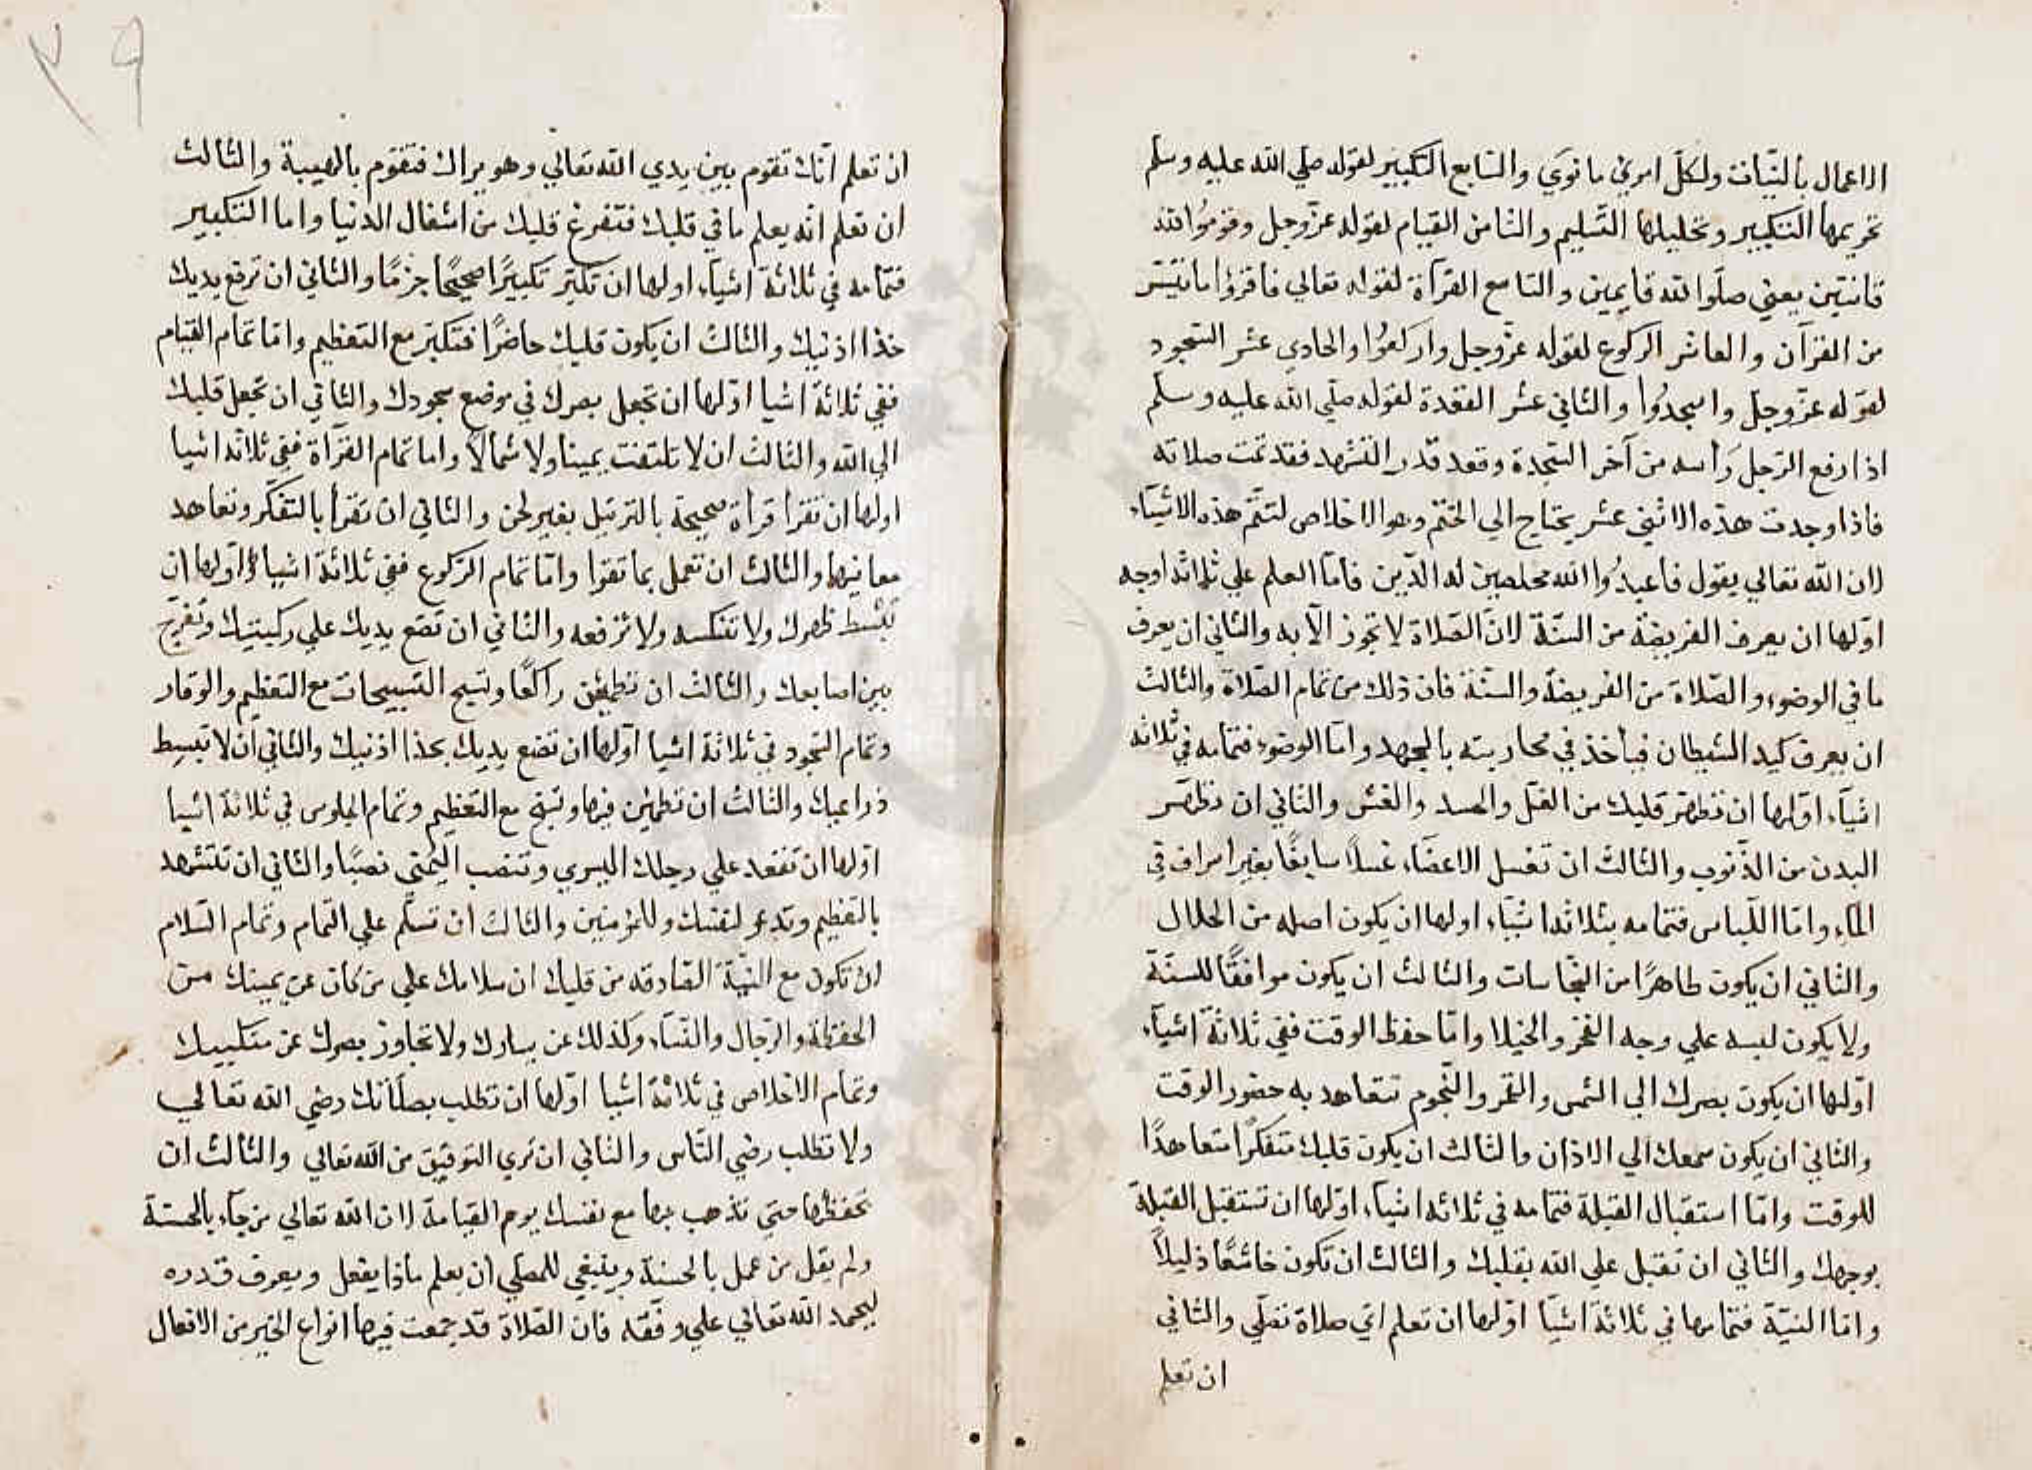 الاعمال بالنيات ولكل امرئ ما نوي والسابع التكبير لقوله صلي الله عليه وسلم
تحريمها التكبير وتحليلها التسليم والثامن القيام لقوله عزوجل وقوموا لله
قانتين يعني صلوا لله قايمين والتاسع القرآة لقوله تعالي فاقرؤا ما تيسر
من القرآن والعاشر الركوع لقوله عزوجل واركعوا والحادي عشر السجود
لقوله عزوجل واسجدوا والثاني عشر القعدة لقوله صلي الله عليه وسلم
اذا رفع الرجل رأسه من آخر السجدة وقعد قدر التشهد فقد تمت صلاته
فاذا وجدت هذه الاثني عشر يحتاج الي الختم وهو الاخلاص لتتم هذه الاشيآء
لان الله تعالي يقول فاعبدوا الله مخلصين له الدين فاما العلم علي ثلاثة اوجه
اولها ان يعرف الفريضة من السنة لان الصلاة لا تجوز الا به والثاني ان يعرف
ما في الوضوء والصلاة من الفريضة والسنة فان ذلك من تمام الصلاة والثالث
ان يعرف كيد الشيطان فيأخذ في محاربته بالجهد واما الوضوء فتمامه في ثلاثة
اشيآء اولها ان تطهر قلبك من الغل والحسد والغش والثاني ان تطهر
البدن من الذنوب والثالث ان تغسل الاعضآء غسلا سابغا بغير اسراف في
المآء واما اللباس فتمامه بثلاثة اشيآء اولها ان يكون اصله من الحلال
والثاني ان يكون طاهرا من النجاسات والثالث ان يكون موافقا للسنة
ولا يكون لبسه علي وجه الفخر والخيلا واما حفظ الوقت ففي ثلاثة اشيآء
اولها ان يكون بصرك الي الشمس والقمر والنجوم تتعاهد به حضور الوقت
والثاني ان يكون سمعك الي الاذان والثالث ان يكون قلبك متفكرا متعاهدا
للوقت واما استقبال القبلة فتمامه في ثلاثة اشيآء اولها ان تستقبل القبلة
بوجهك والثاني ان تقبل علي الله بقلبك والثالث ان تكون خاشعا ذليلا
واما النية فتمامها في ثلاثة اشيآ اولها ان تعلم اي صلاة تصلي والثاني
ان تعلم
٣٩
ان تعلم انك تقوم بين يدي الله تعالي وهو يراك فتقوم بالهيبة والثالث
ان تعلم انه يعلم ما في قلبك فتفرغ قلبك من اشغال الدنيا واما التكبير
فتمامه في ثلاثة اشيآء اولها ان تكبر تكبيرا صحيحا جزما والثاني ان ترفع يديك
حذا اذنيك والثالث ان يكون قلبك حاضرا فتكبر مع التعظيم واما تمام القيام
ففي ثلاثة اشيا اولها ان تجعل بصرك في موضع سجودك والثاني ان تجعل قلبك
الي الله والثالث ان لا تلتفت يمينا ولا شمالا واما تمام القرآة ففي ثلاثة اشيا
اولها ان تقرأ قرأة صحيحة بالترتيل بغير لحن والثاني ان تقرأ بالتفكر وتعاهد
معانيها والثالث ان تعمل بما تقرا واما تمام الركوع ففي ثلاثة اشيا اولها ان
تبسط ظهرك ولا تنكسه ولا ترفعه والثاني ان تضع يديك علي ركبتيك وتفرج
بين اصابعك والثالث ان تطمئن راكعا وتسبح التسبيحات مع التعظيم والوقار
وتمام السجود في ثلاثة اشيا اولها ان تضع يديك بحذا اذنيك والثاني ان لا تبسط
ذراعيك والثالث ان تطمئن فيها وتسبح مع التعظيم وتمام الجلوس في ثلاثة اشيا
اولها ان تقعد علي رجلك اليسري وتنصب اليمني نصبا والثاني ان تتشهد
بالتعظيم وتدعو لنفسك وللمؤمنين والثالث ان تسلم علي التمام وتمام السلام
ان تكون مع النية الصادقة من قلبك ان سلامك علي من كان عن يمينك من
الحفظة والرجال والنسآء وكذلك عن يسارك ولا تجاوز بصرك عن منكبيك
وتمام الاخلاص في ثلاثة اشيا اولها ان تطلب بصلاتك رضي الله تعالي
ولا تطلب رضي الناس والثاني ان تري التوفيق من الله تعالي والثالث ان
تحفظها حتي تذهب بها مع نفسك يوم القيامة لان الله تعالي من جآء بالحسنة
ولم يقل من عمل بالحسنة وينبغي للمصلي ان يعلم ماذا يفعل ويعرف قدره
ليحمد الله تعالي علي وفقه فان الصلاة قد جمعت فيها انواع الخير من الافعال